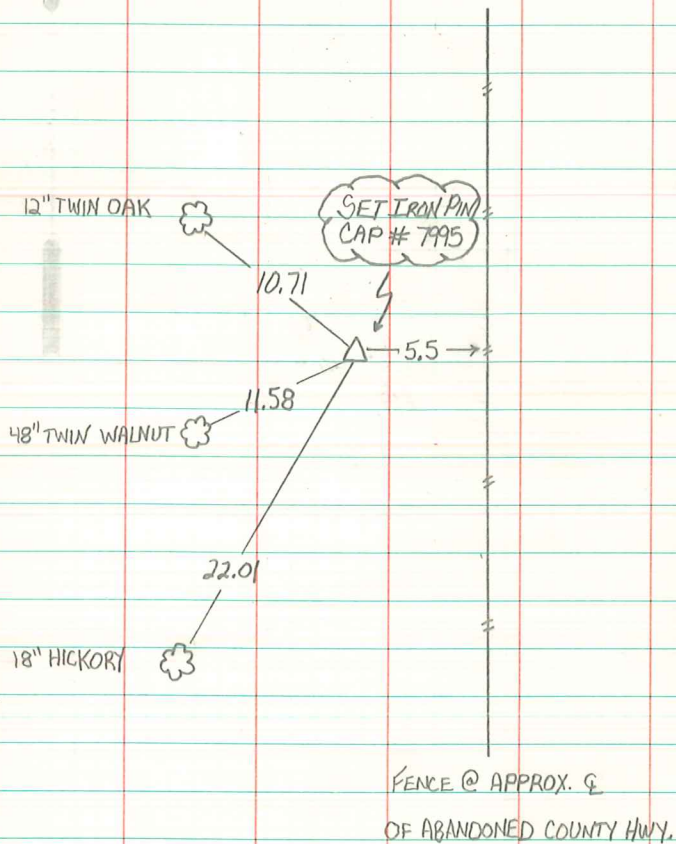 12" TWIN OAK
SET IRON PIN
CAP # 7995
10.71
5.5
11.58
48" TWIN WALNUT
22.01
18" HICKORY
FENCE @ APPROX. ℄
OF ABANDONED COUNTY HWY.